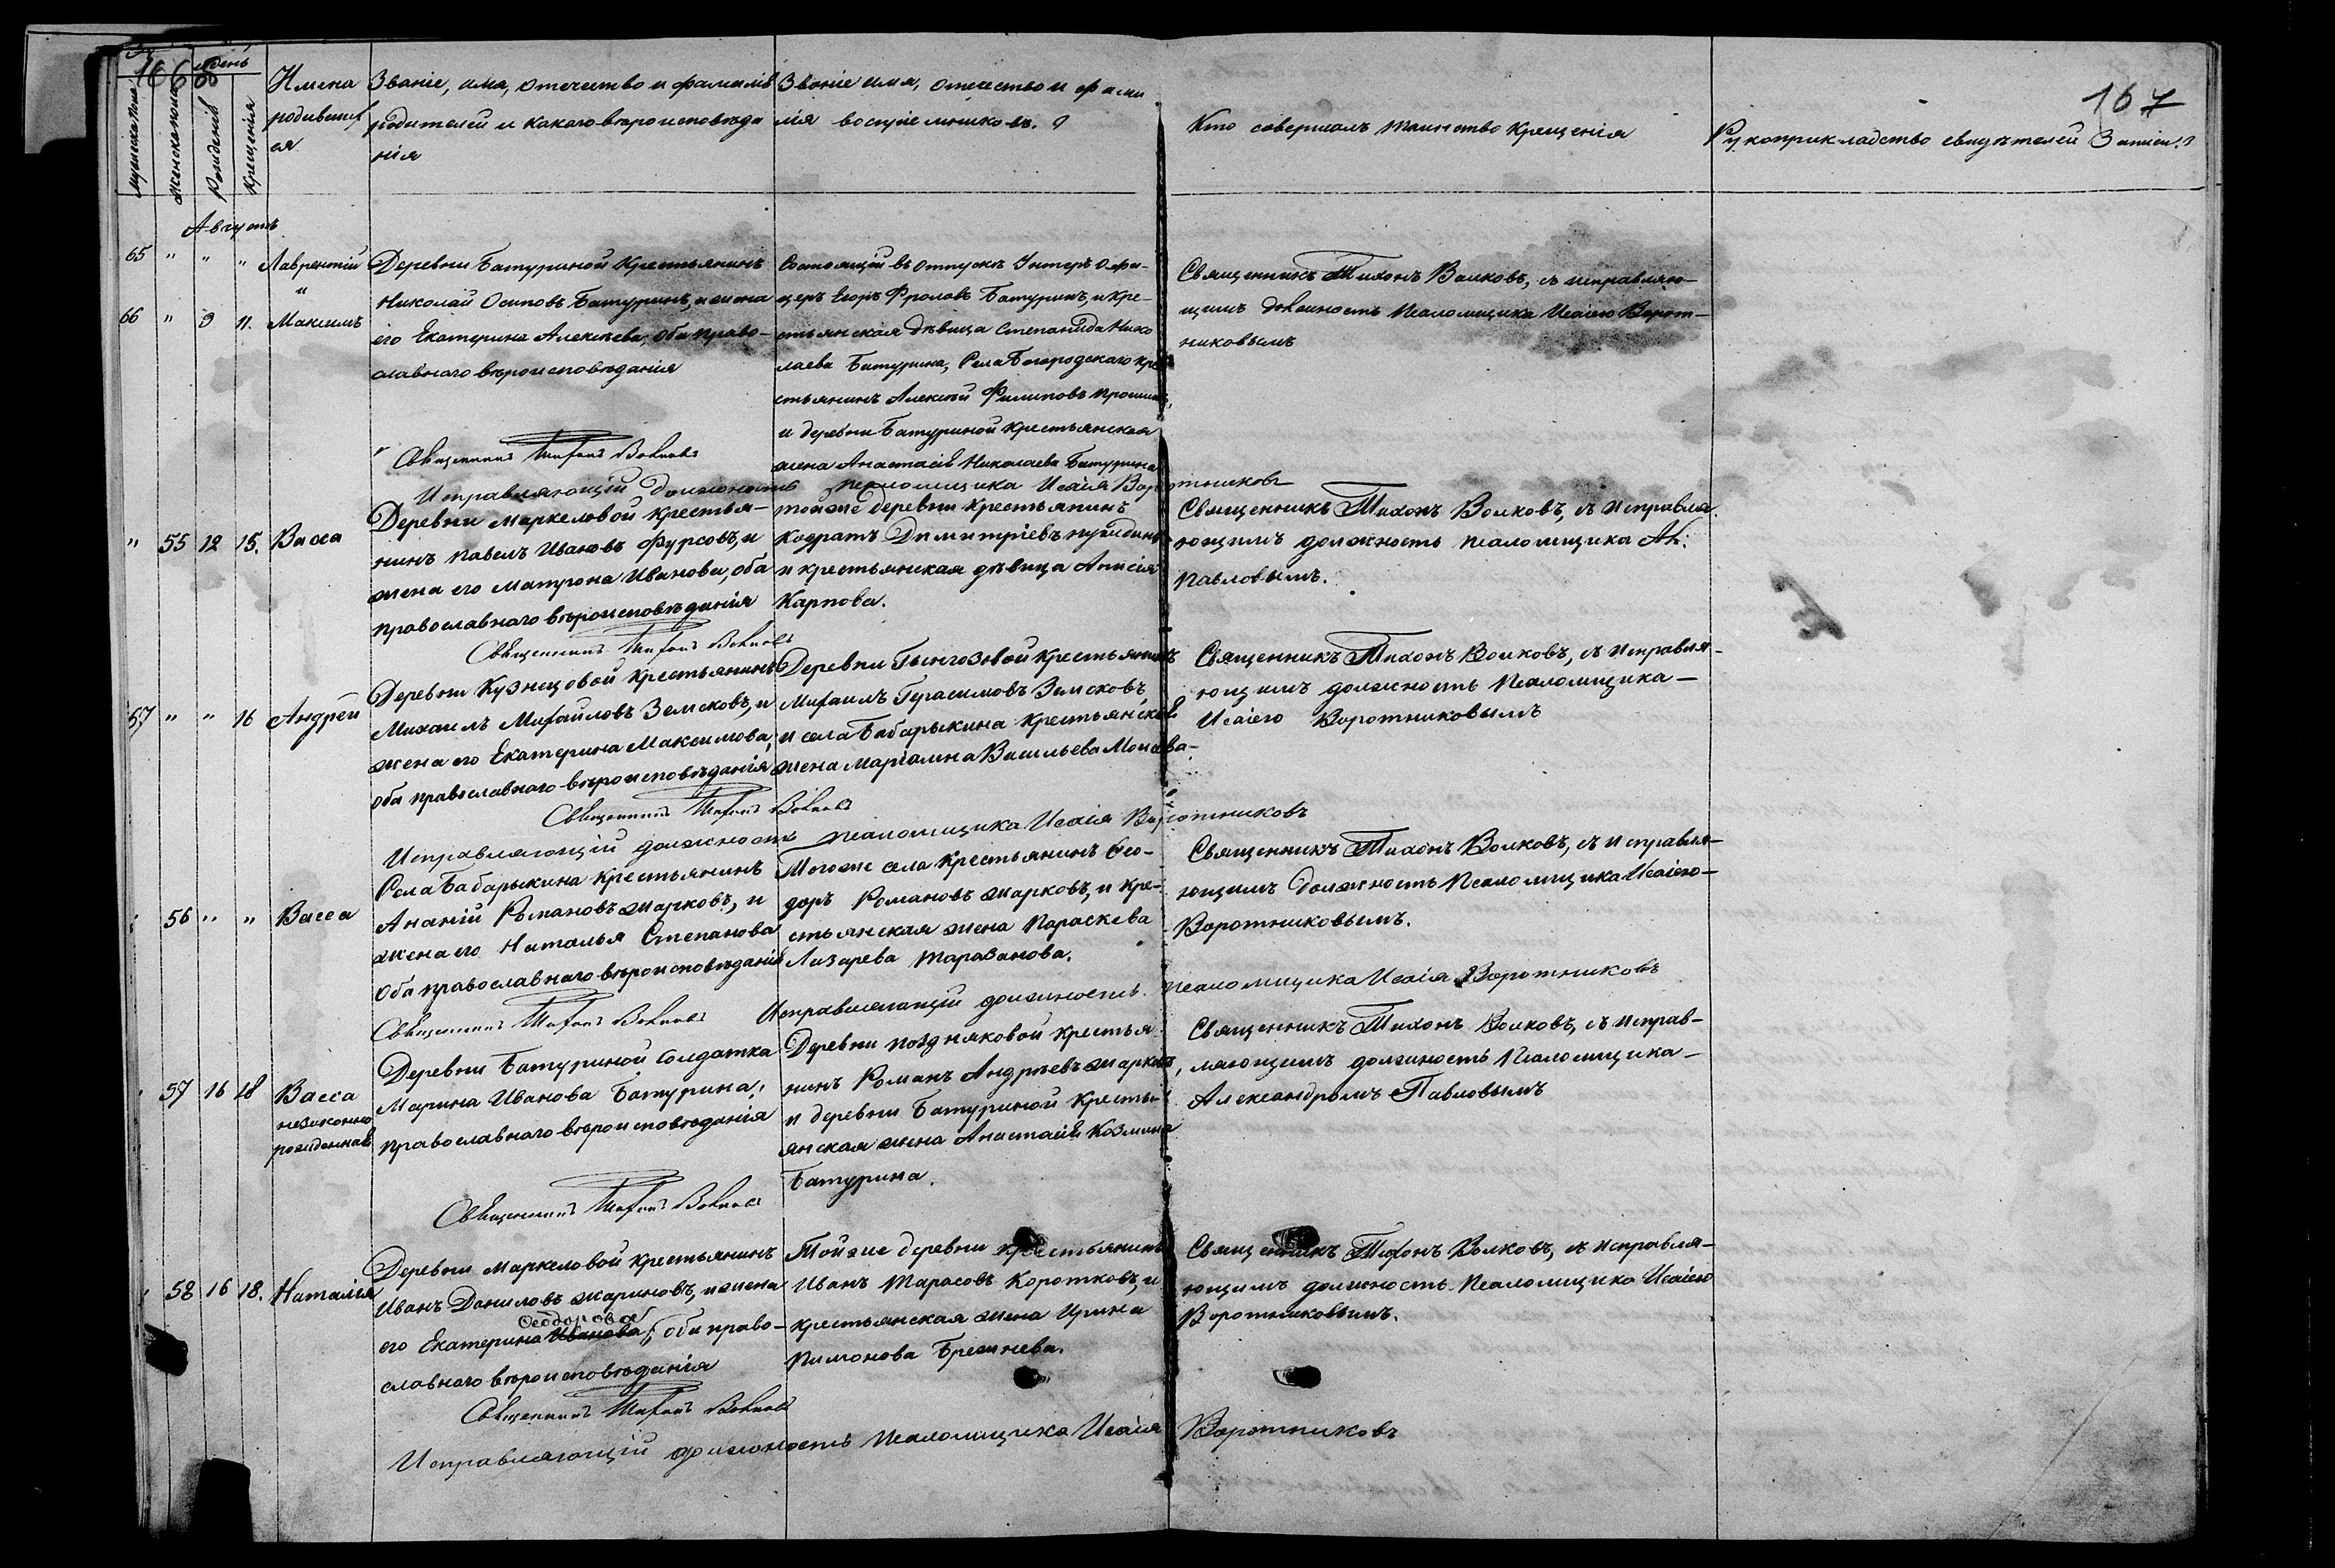 166
167
мужеска пола
женска пола
Рожденія
Крещенія
день
Имена
родившихъ
ся
Званіе, имя, отечество и фамилія
родителей и какого вѣроисповѣда
нія
Званіе имя, отечество и фами
лія воспріемниковъ.
Кто совершалъ таинство крещенія
Рукоприкладство свидѣтелей Записи.
Августъ
65 " " " Лаврентій
"
66 " 9 11. Максимъ
Деревни Батуриной крестьянинъ
Николай Осиповъ Батуринъ, и жена
его Екатерина Алексѣева, оба право-
славнаго вѣроисповѣданія
Состоящій въ отпускѣ Унтеръ Офи-
церъ Егоръ Фроловъ Батуринъ, и кре-
стьянская дѣвица Степанида Нико
лаева Батурина, Села Богородскаго кре
стьянинъ Алексѣй Филиповъ
и деревни Батуриной крестьянская
жена Анастасія Николаева Батурина
Священникъ Тихонъ Волковъ, съ исправляю-
щимъ должность Псаломщика Исаіею Ворот-
никовымъ
Священникъ Тихонъ Волковъ
Исправляющій должность псаломщика Исаія Воротниковъ
" 55 12 15. Васса
Деревни Маркеловой крестья-
нинъ Павелъ Ивановъ Фурсовъ, и
жена его Матрона Иванова, оба
православнаго вѣроисповѣданія
тойже деревни крестьянинъ
Кодратъ Димитріевъ
и крестьянская дѣвица Анисія
Карпова.
Священникъ Тихонъ Волковъ, съ исправля
ющимъ должность псаломщика Ал.
Павловымъ.
Священникъ Тихонъ Волковъ
67 " " 16 Андрей
Деревни Кузнецовой крестьянинъ
Михаилъ Михайловъ Земсковъ, и
жена его Екатерина Максимова,
оба православнаго вѣроисповѣданія
Деревни Гынгозовой крестьянинъ
Михаилъ Герасимовъ Земсковъ,
и села Бабарыкина крестьянская
жена Маріамна Васильева Моисеева-
Священникъ Тихонъ Волковъ, съ исправля-
ющимъ должность Псаломщика-
Исаіею Воротниковымъ
Священникъ Тихонъ Волковъ
Исправляющій должность псаломщика Исаія Воротниковъ
56 " " Васса
Села Бабарыкина крестьянинъ
Ананій Романовъ Марковъ, и
жена его Наталья Степанова
оба православнаго вѣроисповѣданія
Тогоже села крестьянинъ Ѳео-
доръ Романовъ Марковъ, и кре-
стьянская жена Параскева
Лазарева Тараканова.
Священникъ Тихонъ Волковъ, съ исправля-
ющимъ должность Псаломщика Исаіею-
Воротниковымъ.
Священникъ Тихонъ Волковъ
Исправляющій должность псаломщика Исаія Воротниковъ
57 16 18 Васса
незаконно
рожденная
Деревни Батуриной солдатка
Марина Иванова Батурина,
православнаго вѣроисповѣданія
Деревни Поздняковой крестья
нинъ Романъ Андреевъ Марковъ,
и деревни Батуриной кресть-
янская жена Анастасія Козмина
Батурина.
Священникъ Тихонъ Волковъ, съ исправ-
ляющимъ должность Псаломщика-
Александромъ Павловымъ
Священникъ Тихонъ Волковъ
58 16 18. Наталія
Деревни Маркеловой крестьянинъ
Иванъ Даниловъ Жариновъ, и жена
Ѳеодорова
его Екатерина Иванова, оба право-
славнаго вѣроисповѣданія
Тойже деревни крестьянинъ
Иванъ Тарасовъ Коротковъ, и
крестьянская жена Ирина
Пимонова Брежнева.
Священникъ Тихонъ Волковъ, съ исправля-
ющимъ должность Псаломщика Исаіею
Воротниковымъ.
Священникъ Тихонъ Волковъ
Исправляющій должность псаломщика Исаія Воротниковъ